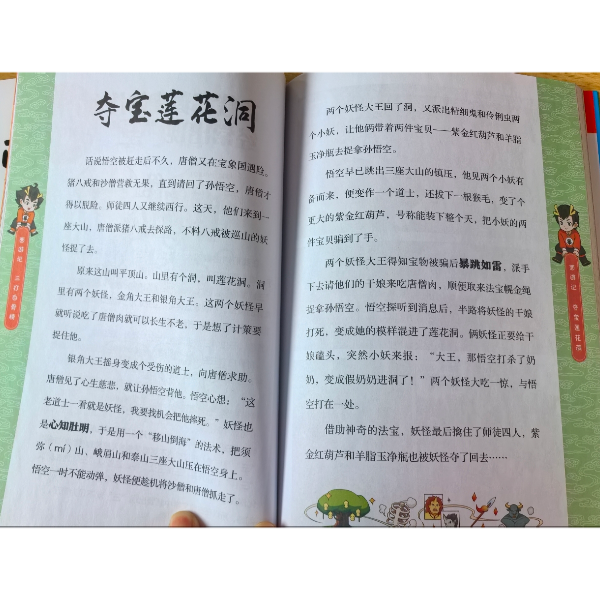 夺宝莲花洞
话说悟空被赶走后不久，唐僧又在宝象国遇险。
猪八戒和沙僧营救无果，直到请回了孙悟空，唐僧才
得以脱险。师徒四人又继续西行。这天，他们来到一
座大山，唐僧派猪八戒去探路，不料八戒被巡山的妖
怪捉了去。
原来这山叫平顶山，山里有个洞，叫莲花洞。洞
里有两个妖怪，金角大王和银角大王，这两个妖怪早
就听说吃了唐僧肉就可以长生不老，于是想了计策要
捉住他。
银角大王摇身变成个受伤的道士，向唐僧求助。
唐僧见了心生慈悲，就让孙悟空背他。悟空心想：“这
老道士一看就是妖怪，我要找机会把他摔死。”妖怪也
是心知肚明，于是用一个“移山倒海”的法术，把须
弥（mí）山、峨眉山和泰山三座大山压在悟空身上。
悟空一时不能动弹，妖怪便趁机将沙僧和唐僧抓走了。
西游记
三打白骨精
两个妖怪大王回了洞，又派出精细鬼和伶俐虫两
个小妖，让他俩带着两件宝贝——紫金红葫芦和羊脂
玉净瓶去捉拿孙悟空。
悟空早已跳出三座大山的镇压，他见两个小妖有
备而来，便变作一个道士，还拔下一根猴毛，变了个
更大的紫金红葫芦，号称能装下整个天，把小妖的两
件宝贝骗到了手。
两个妖怪大王得知宝物被骗后暴跳如雷，派手
下去请他们的干娘来吃唐僧肉，顺便取来法宝幌金绳
捉拿孙悟空。悟空探听到消息后，半路将妖怪的干娘
打死，变成她的模样进了莲花洞。俩妖怪正要给干
娘磕头，突然小妖来报：“大王，那悟空打杀了奶
奶，变成假奶奶进洞了！”两个妖怪大吃一惊，与悟
空打在一处。
借助神奇的法宝，妖怪最后擒住了师徒四人，紫
金红葫芦和羊脂玉净瓶也被妖怪夺了回去……
西游记
夺宝莲花洞